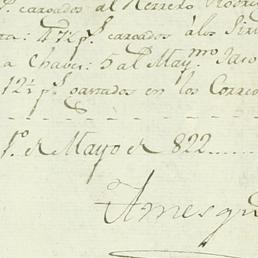 p.s cargados al Herrero Rodri
ra: 472 p.s cargados à los Sirv
a Chaves: 5 al May.mo Jaco
12½ p.s gastados en los Correo
1.º de Mayo de 822
Amesqu